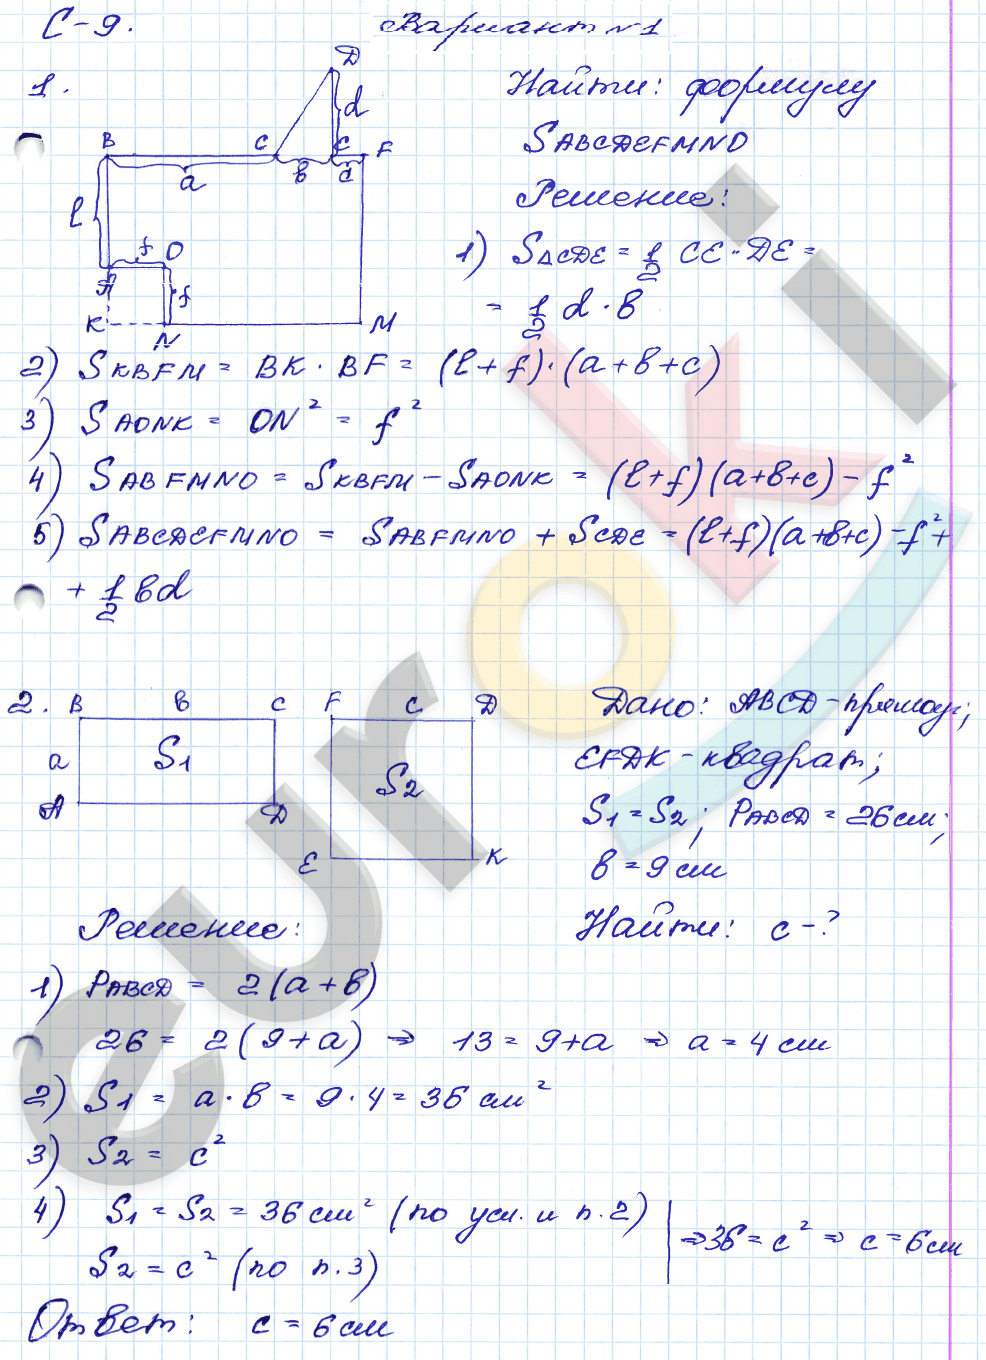 С-9. Вариант №1
1.
D
d
B C E F
a b c
l
f O
A f
K N M
Найти: формулу
SABCDEFMNO
Решение:
1) S△CDE = 1/2 CE · DE =
= 1/2 d · b
2) SKBFM = BK · BF = (l + f) · (a + b + c)
3) SAONK = ON² = f²
4) SABFMNO = SKBFM − SAONK = (l + f)(a + b + c) − f²
5) SABCDEFMNO = SABFMNO + SCDE = (l + f)(a + b + c) − f² +
+ 1/2 bd
2.
B b C F c D
a S1 S2
A D
E K
Дано: ABCD − прямоуг;
EFDK − квадрат;
S1 = S2; PABCD = 26 см;
b = 9 см
Решение: Найти: c − ?
1) PABCD = 2(a + b)
26 = 2(9 + a) ⇒ 13 = 9 + a ⇒ a = 4 см
2) S1 = a · b = 9 · 4 = 36 см²
3) S2 = c²
4) S1 = S2 = 36 см² (по усл. и п. 2)
S2 = c² (по п. 3)
⇒ 36 = c² ⇒ c = 6 см
Ответ: c = 6 см
euroki